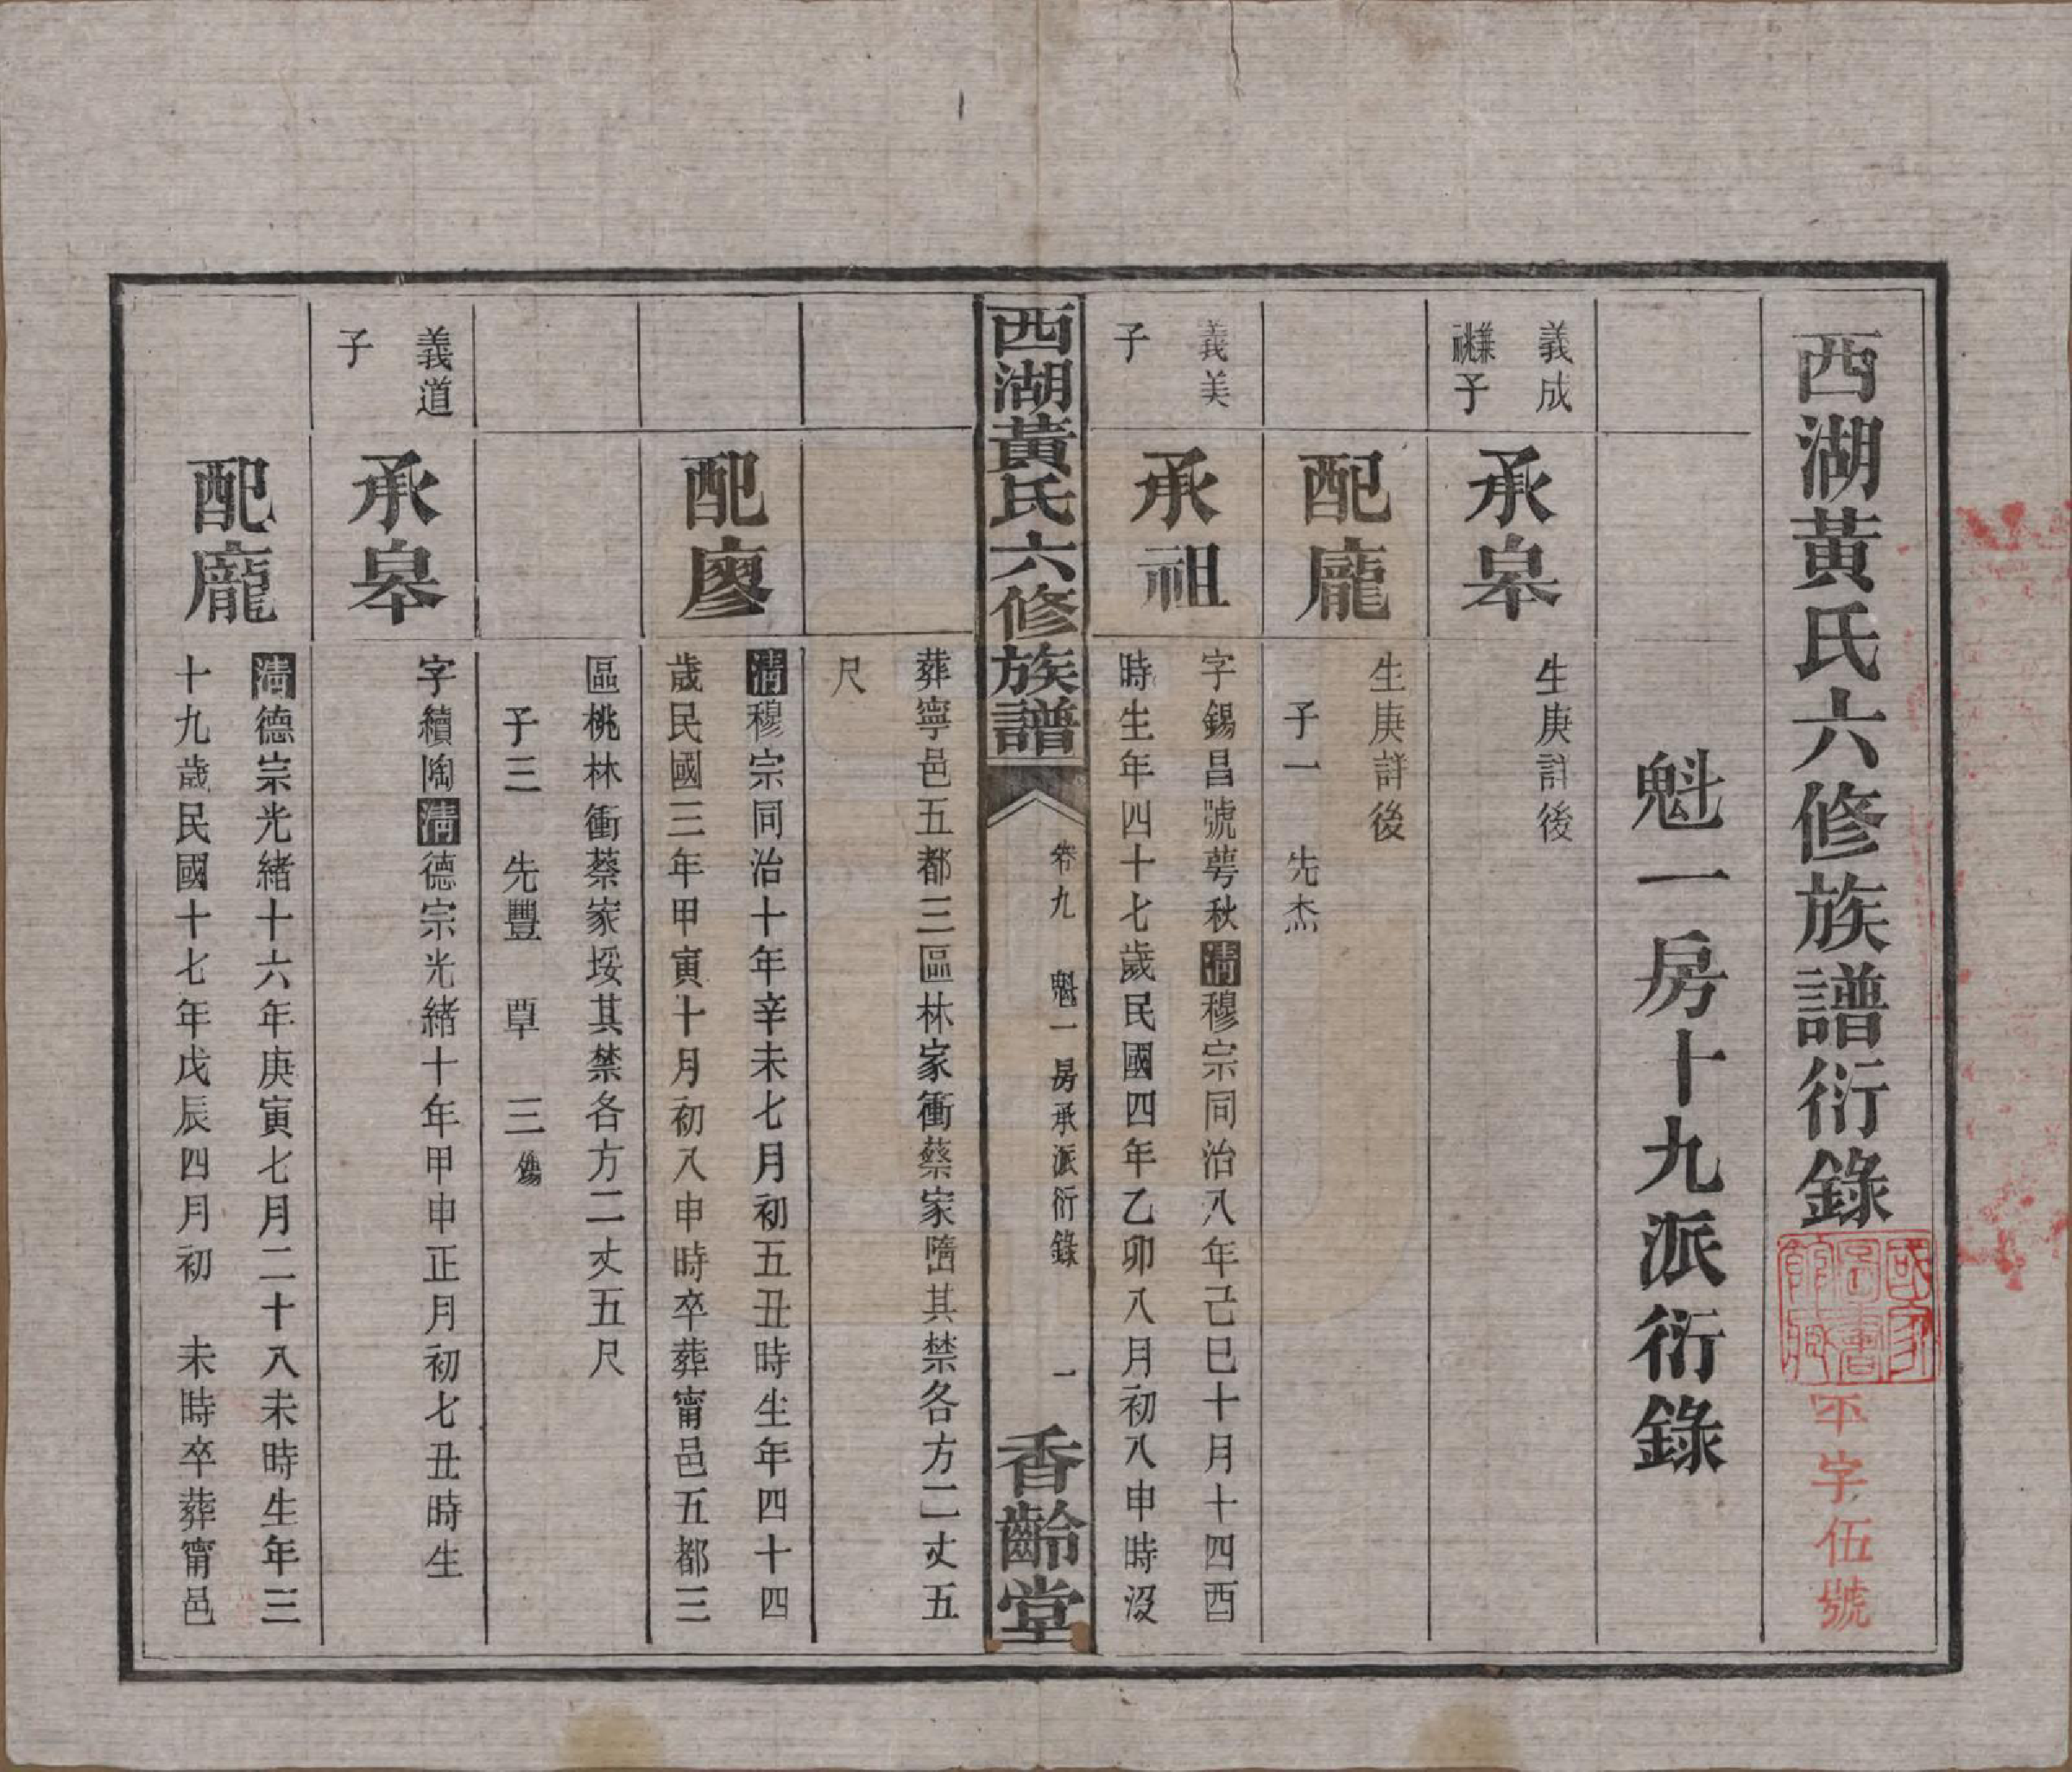 西湖黃氏六修族譜衍錄
國家圖書館藏
不字伍號
魁一房十九派衍錄
義成
兼祧子
承皋
生庚詳後
配龐
生庚詳後
子一　先杰
義美
子
承祖
字錫昌號萼秋清穆宗同治八年己巳十月十四酉
時生年四十七歲民國四年乙卯八月初八申時沒
西湖黃氏六修族譜
卷九　魁一房承派衍錄　一
香齡堂
葬寧邑五都三區林家衝蔡家其禁各方二丈五
尺
配廖
清穆宗同治十年辛未七月初五丑時生年四十四
歲民國三年甲寅十月初八申時卒葬甯邑五都三
區桃林衝蔡家塅其禁各方二丈五尺
子三　先豐　覃　三殤
義道
子
承皋
字續陶清德宗光緒十年甲申正月初七丑時生
配龐
清德宗光緒十六年庚寅七月二十八未時生年三
十九歲民國十七年戊辰四月初　未時卒葬甯邑